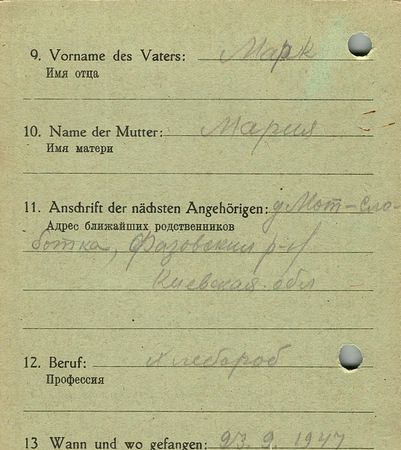 9. Vorname des Vaters: Марк
Имя отца
10. Name der Mutter: Мария
Имя матери
11. Anschrift der nächsten Angehörigen: д Мот-Сло-
Адрес ближайших родственников
ботка, Фазовский р-н
Киевская обл
12. Beruf: Хлебороб
Профессия
13 Wann und wo gefangen: 23.9.1947